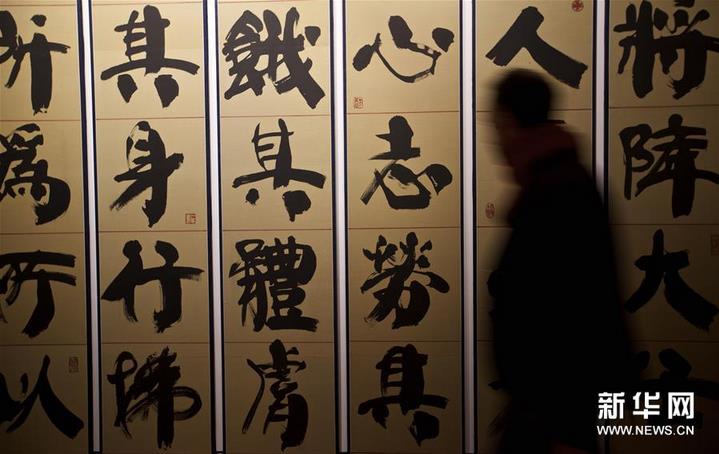 將降大
人
心志勞其
餓其體膚
其身行拂
所為所以
新华网
WWW.NEWS.CN